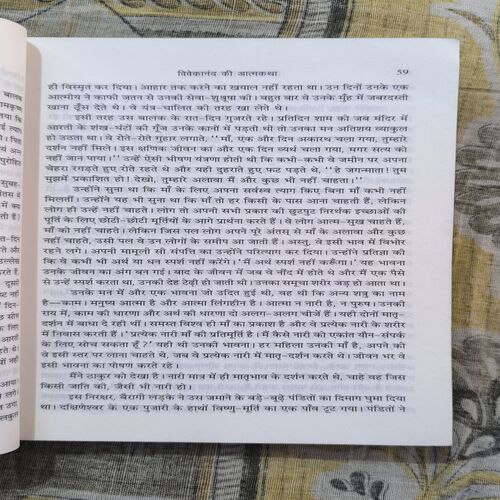 विवेकानंद की आत्मकथा 59
ही विस्मृत कर दिया। आहार तक करने का खयाल नहीं रहता था। उन दिनों उनके एक
आत्मीय ने काफी जतन से उनकी सेवा-शुश्रूषा की। बहुत बार वे उनके मुँह में जबरदस्ती
खाना ठूँस देते थे। वे यंत्र-चालित की तरह खा लेते थे।
इसी तरह उस बालक के रात-दिन गुजरते रहे। प्रतिदिन शाम को जब मंदिर में
आरती के शंख-घंटों की गूँज उनके कानों में पड़ती थी तो उनका मन अतिशय व्याकुल
हो उठता था। वे रोते-रोते गुहार लगाते, ''माँ, एक और दिन अकारथ चला गया, तुम्हारे
दर्शन नहीं मिले। इस क्षणिक जीवन का और एक दिन व्यर्थ चला गया, मगर सत्य को
नहीं जान पाया।'' उन्हें ऐसी भीषण यंत्रणा होती थी कि कभी-कभी वे जमीन पर अपना
चेहरा रगड़ते हुए रोते रहते थे और यही दुहराते हुए फट पड़ते थे, ''हे जगन्माता! तुम
मुझमें प्रकाशित हो! देखो, तुम्हारे अलावा मैं और कुछ भी नहीं चाहता।''
उन्होंने सुना था कि माँ के लिए अपना सर्वस्व त्याग किए बिना माँ कभी नहीं
मिलतीं। उन्होंने यह भी सुना था कि माँ तो हर किसी के पास आना चाहती हैं, लेकिन
लोग ही उन्हें नहीं चाहते। लोग तो अपनी सभी प्रकार की छुटपुट निरर्थक इच्छाओं की
पूर्ति के लिए छोटी-छोटी मूर्तियों के आगे प्रार्थना करते हैं। वे लोग आत्म-सुख चाहते हैं,
माँ को नहीं चाहते। लेकिन जिस पल लोग अपने पूरे अंतस् से माँ के अलावा और कुछ
नहीं चाहते, उसी पल वे उन लोगों के समीप आ जाती हैं। अस्तु, वे इसी भाव में विभोर
रहने लगे। अपनी मामूली सी संपत्ति का उन्होंने परित्याग कर दिया। उन्होंने प्रतिज्ञा की
कि वे कभी भी अर्थ या धन स्पर्श नहीं करेंगे। 'मैं अर्थ स्पर्श नहीं करूँगा।' यह भावना
उनके जीवन का अंग बन गई। बाद के जीवन में जब वे नींद में होते थे और मैं एक पैसे
से उन्हें स्पर्श करता था, उनकी देह टेढ़ी हो जाती थी। उनका समूचा शरीर जड़ हो आता था।
उनके मन में और एक भावना जो उदित हुई थी, वह थी कि अन्य शत्रु का नाम
है—काम। मनुष्य आत्मा है और आत्मा लिंगहीन है। आत्मा न नारी है, न पुरुष। उनकी
राय में, काम की धारणा और अर्थ की धारणा दो अलग-अलग चीजें हैं। यही दोनों मातृ-
दर्शन में बाधा दे रही थीं। समस्त विश्व ही माँ का प्रकाश है और वे प्रत्येक नारी के शरीर
में निवास करती हैं। 'प्रत्येक नारी माँ की प्रतिमूर्ति है। मैं कैसे नारी को एकांत यौन-संपर्क
के लिए सोच सकता हूँ?' यही थी उनकी भावना। हर महिला उनकी माँ है, अपने को
वे इसी स्तर पर लाना चाहते थे, जब वे प्रत्येक नारी में मातृ-दर्शन करते थे। जीवन भर वे
इसी भावना का पोषण करते रहे।
मैंने ठाकुर को देखा है। नारी मात्र में ही मातृभाव के दर्शन करते थे, चाहे वह जिस
किसी जाति की, जैसी भी नारी हो।
इस निरक्षर, बैरागी लड़के ने उस जमाने के बड़े-बूढ़े पंडितों का दिमाग घुमा दिया
था। दक्षिणेश्वर के एक पुजारी के हाथों विष्णु-मूर्ति का एक पाँव टूट गया। पंडितों ने